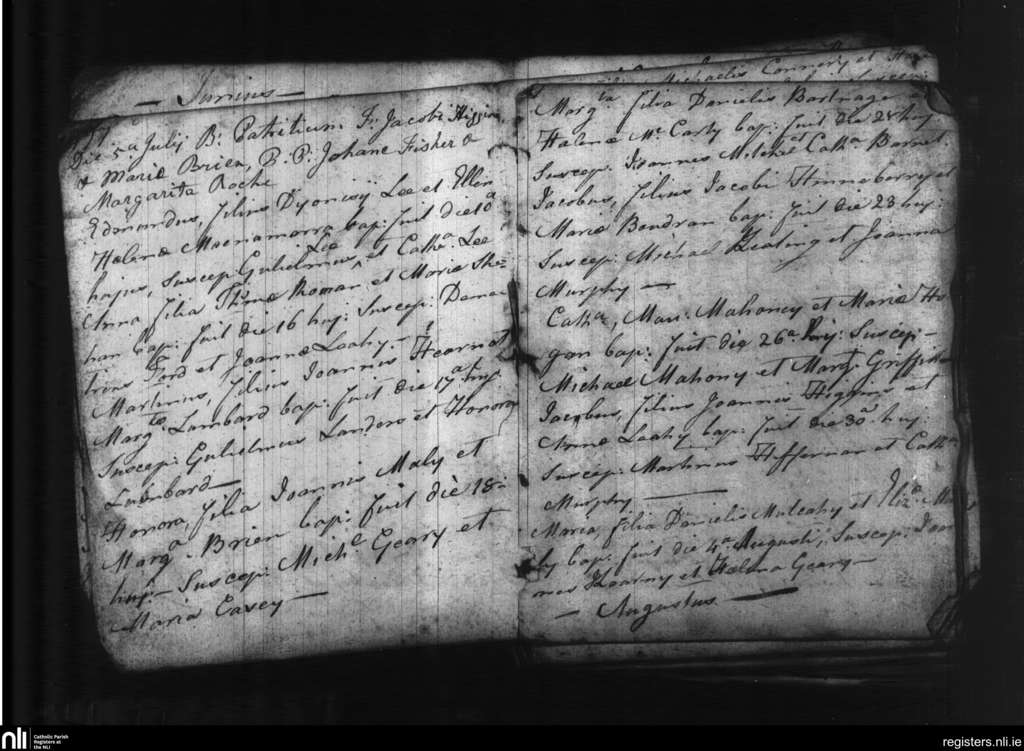 — Junius —
Die 5a Julij B: Patritium F: Jacobi Higgins
& Maria Brien, P: P: Johane Fisher &
Margarita Roche
Edmundus, filius Dyonisij Lee et Ellen
Helena Macnamarra bap: fuit die 10a
hujus, Suscep: Gulielmus Lee et Catha: Lee
Anna filia Thomæ Ronan et Maria She=
han bap: fuit die 16 huj: Suscep: Deme
trius Ford et Joanna Leahy —
Martinus, filius Joannis Hearn et
Margta Lambard bap: fuit die 17a huj:
Suscep: Gulielmus Landers et Honora
Lumbard —
Honora, filia Joannis Maly et
Marga Brien bap: fuit die 18a
huj: — Suscep: Michl Geary et
Maria Casey —
Michaelis Connery et
Margta filia Danielis Bartnage
Helena Mc Carty bap: fuit die 21 huj:
Suscep: Joannes Mitchel Catha Barnet
Jacobus, filius Jacobi Hinnaberry et
Maria Bendran bap: fuit die 23 huj:
Suscep: Michael Keating et Joanna
Murphy —
Catha, Mau: Mahoney et Maria Ho
gan bap: fuit die 26a huj: Suscep: —
Michael Mahony et Margt: Griffith
Jacobus, filius Joannis Higgins et
Anna Leahy bap: fuit die 30a huj:
Suscep: Martinus Heffernan et Catha
Murphy —
Maria, filia Danielis Mulcahy et Eliza: Ma
ly bap: fuit die 4a Augusti, Suscep: Joan
nes Kearny et Helena Geary —
— Augustus —
nli
Catholic Parish
Registers at
the NLI
registers.nli.ie